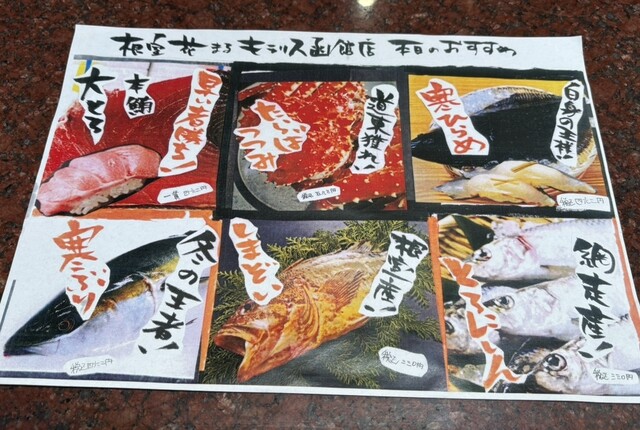 根室花まる キラリス函館店 本日のおすすめ
早い者勝ち!
本鮪
大とろ
道東獲れ!
たらばつつみ
白身の王様!
寒ひらめ
冬の王者!
寒ぶり
根室産!
しまぞい
税込 三三〇円
網走産!
とろにしん
税込 三三〇円